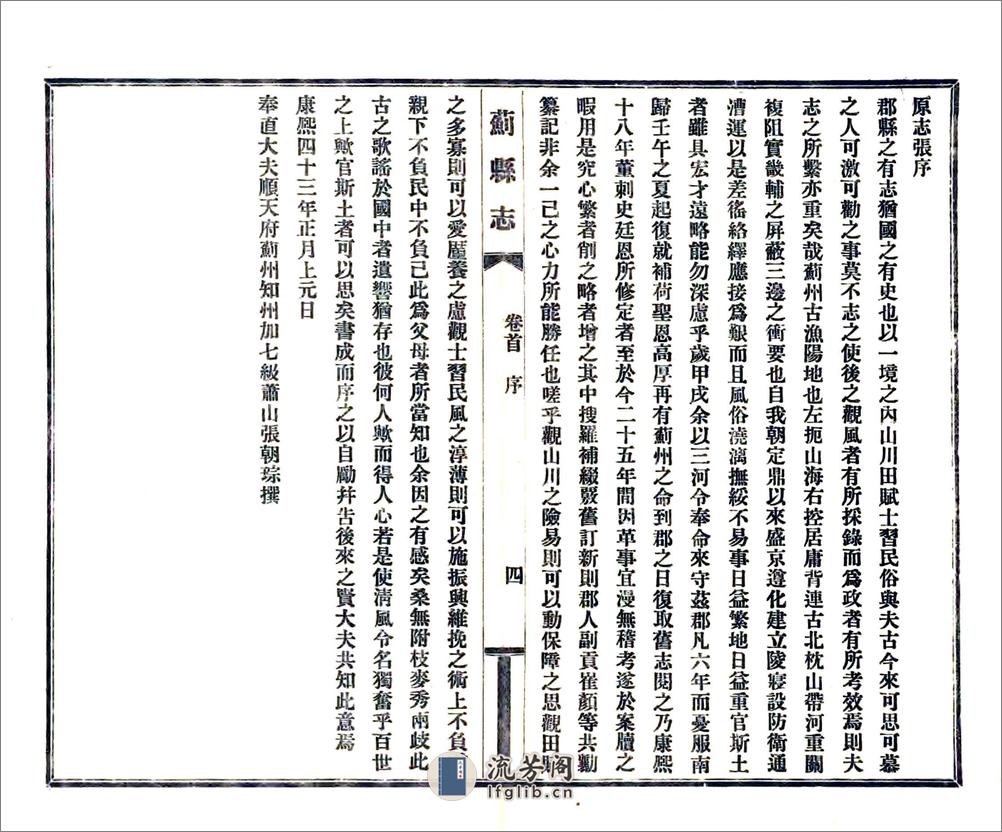 原志張序
郡縣之有志猶國之有史也以一境之內山川田賦士習民俗與夫古今來可思可慕
之人可激可勸之事莫不志之使後之觀風者有所採錄而爲政者有所考效焉則夫
志之所繫亦重矣哉薊州古漁陽地也左扼山海右控居庸背連古北枕山帶河重關
複阻實畿輔之屏蔽三邊之衝要也自我朝定鼎以來盛京遵化建立陵寢設防衛通
漕運以是差徭絡繹應接爲艱而且風俗澆漓撫綏不易事日益繁地日益重官斯土
者雖具宏才遠略能勿深慮乎歲甲戌余以三河令奉命來守茲郡凡六年而憂服南
歸壬午之夏起復就補荷聖恩高厚再有薊州之命到郡之日復取舊志閱之乃康熙
十八年董刺史廷恩所修定者至於今二十五年間因革事宜漫無稽考遂於案牘之
暇用是究心繁者削之略者增之其中搜羅補綴覈舊訂新則郡人副貢崔顏等共勷
纂記非余一己之心力所能勝任也嗟乎觀山川之險易則可以動保障之思觀田
薊縣志
卷首 序
四
之多寡則可以愛蓄養之慮觀士習民風之淳薄則可以施振興維挽之術上不負
親下不負民中不負己此爲父母者所當知也余因之有感矣桑無附枝麥秀兩歧此
古之歌謠於國中者遺響猶存也彼何人歟而得人心若是使淸風令名獨奮乎百世
之上歟官斯土者可以思矣書成而序之以自勵幷吿後來之賢大夫共知此意焉
康熙四十三年正月上元日
奉直大夫順天府薊州知州加七級蕭山張朝琮撰
流芳阁
lfglib.cn